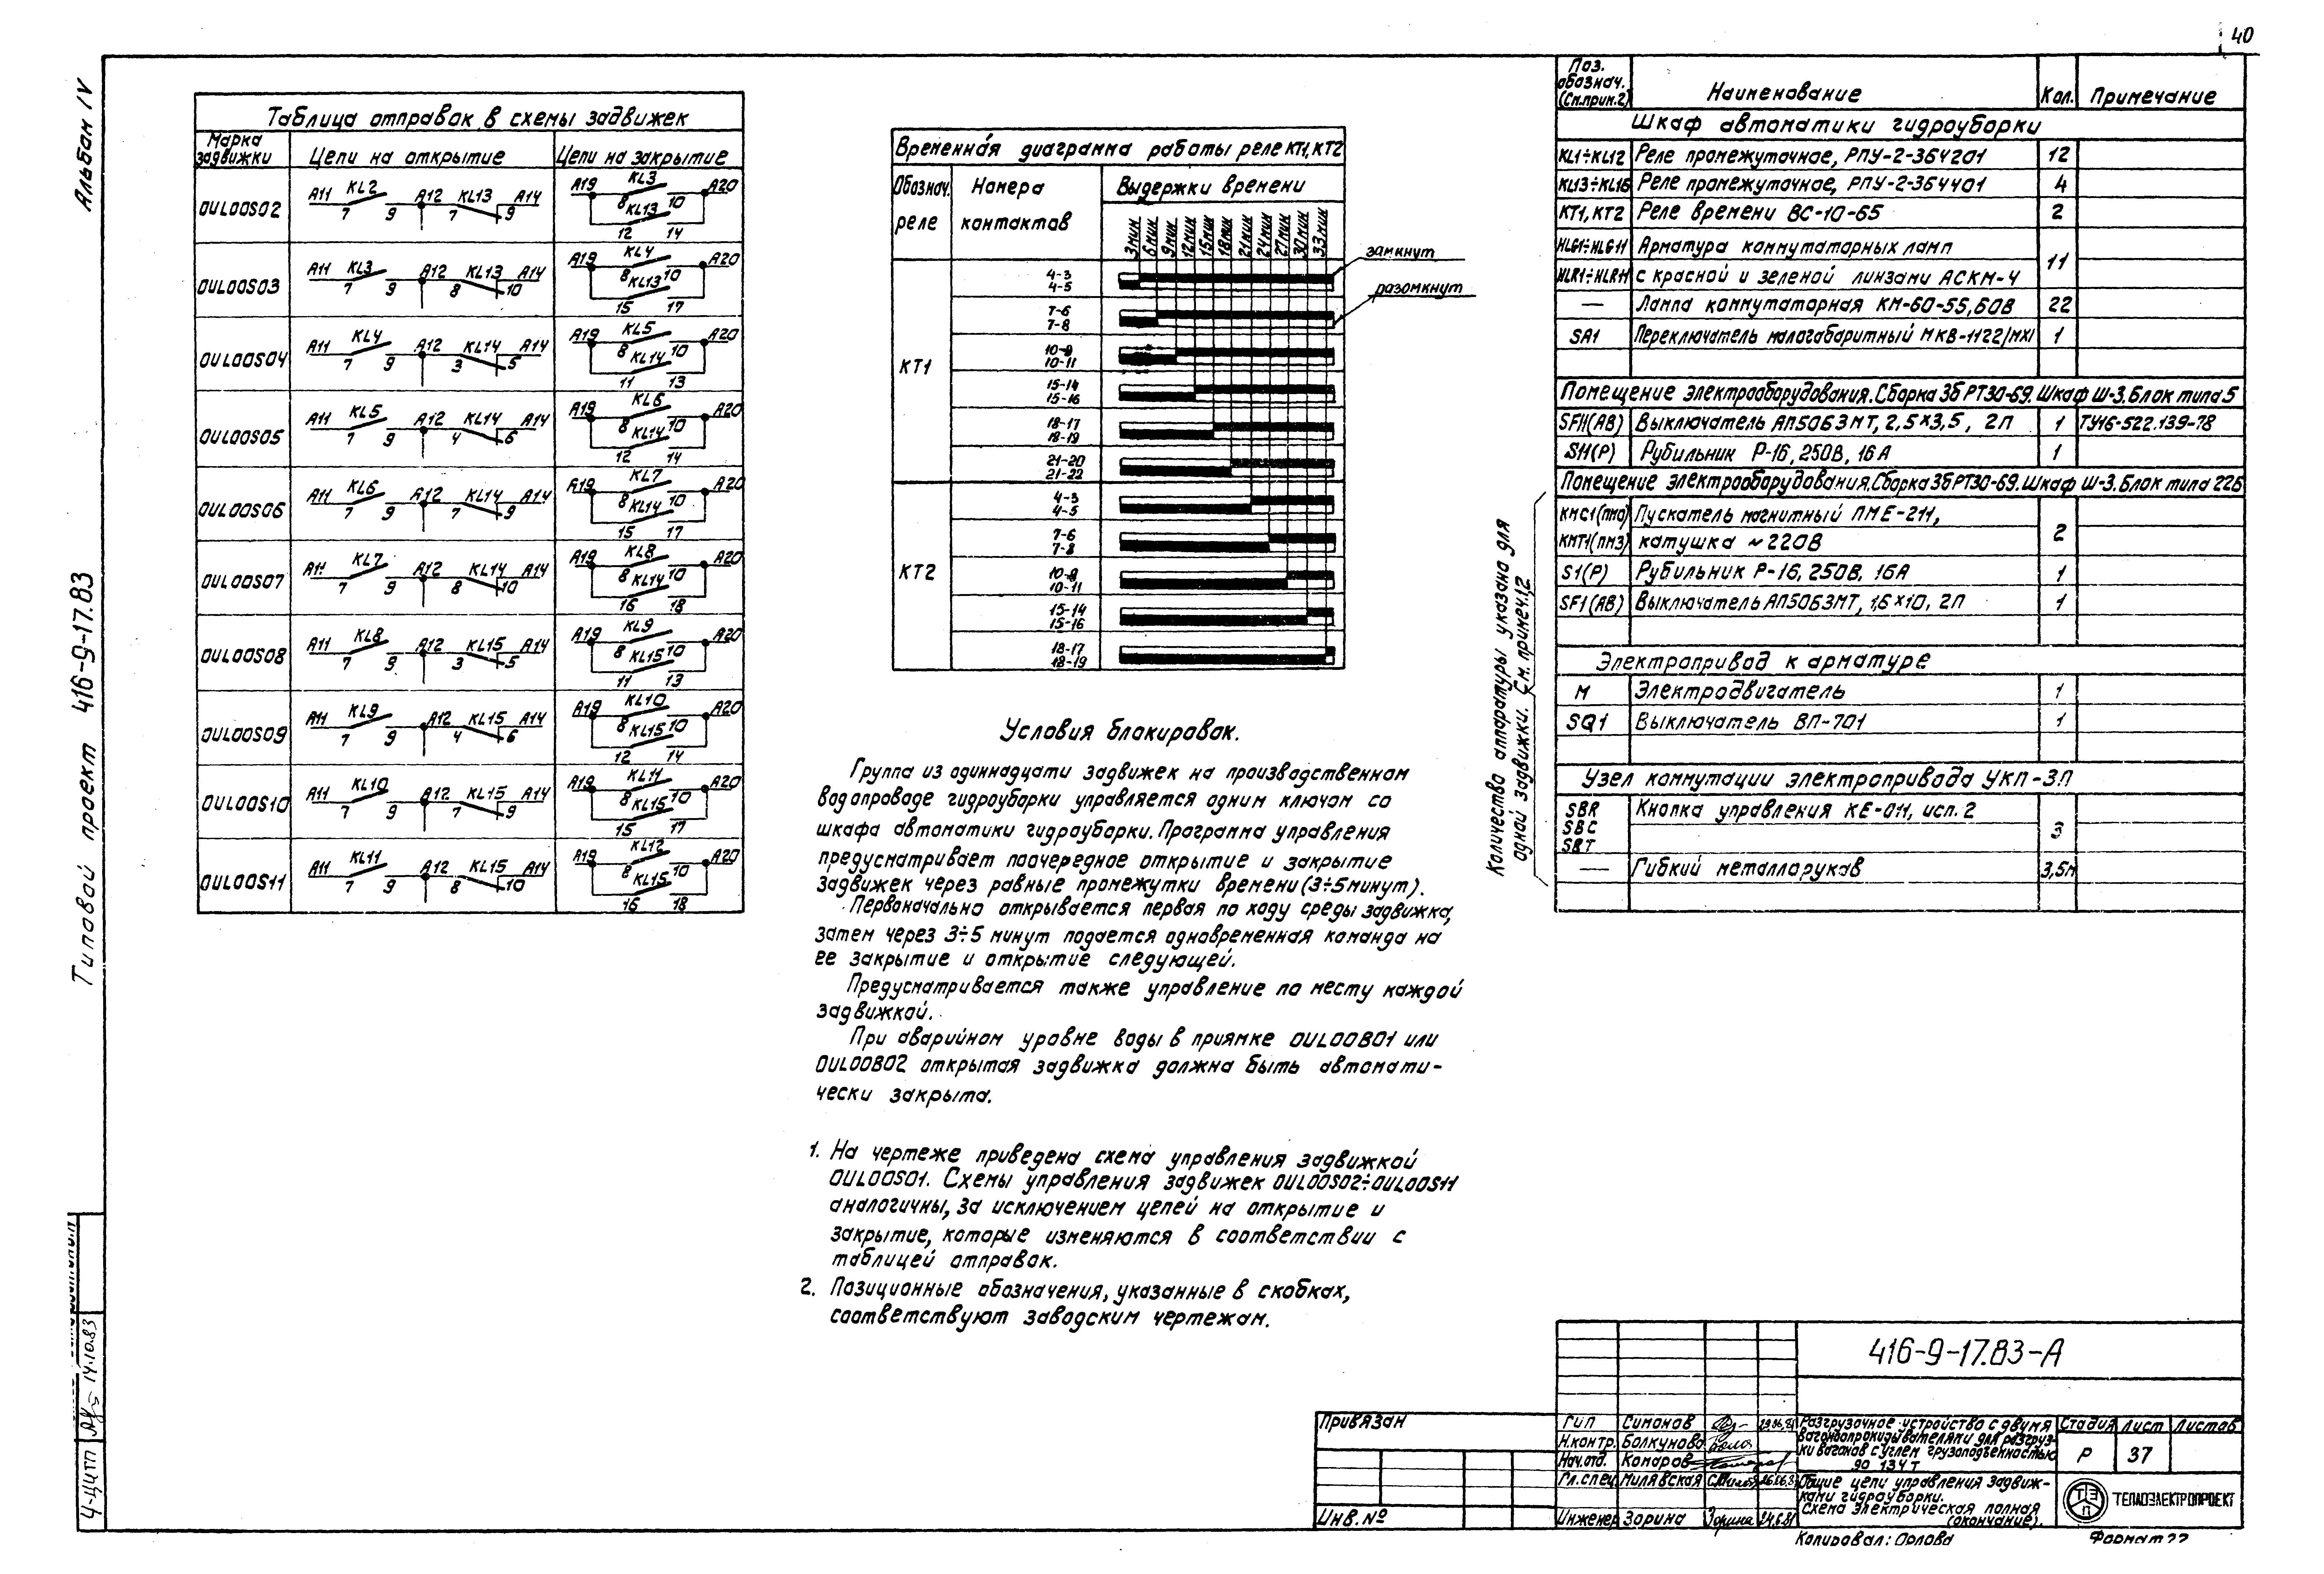 40
Альбом IV
Типовой проект 416-9-17.83
Таблица отправок в схемы задвижек
Марка задвижки
Цепи на открытие
Цепи на закрытие
0UL00S02 A11 KL2 A12 KL13 A14 7 9 7 9 A19 KL3 A20 8 KL13 10 12 14
0UL00S03 A11 KL3 A12 KL13 A14 7 9 8 10 A19 KL4 A20 8 KL13 10 15 17
0UL00S04 A11 KL4 A12 KL14 A14 7 9 3 5 A19 KL5 A20 8 KL14 10 11 13
0UL00S05 A11 KL5 A12 KL14 A14 7 9 4 6 A19 KL6 A20 8 KL14 10 12 14
0UL00S06 A11 KL6 A12 KL14 A14 7 9 7 9 A19 KL7 A20 8 KL14 10 15 17
0UL00S07 A11 KL7 A12 KL14 A14 7 9 8 10 A19 KL8 A20 8 KL14 10 16 18
0UL00S08 A11 KL8 A12 KL15 A14 7 9 3 5 A19 KL9 A20 8 KL15 10 11 13
0UL00S09 A11 KL9 A12 KL15 A14 7 9 4 6 A19 KL10 A20 8 KL15 10 12 14
0UL00S10 A11 KL10 A12 KL15 A14 7 9 7 9 A19 KL11 A20 8 KL15 10 15 17
0UL00S11 A11 KL11 A12 KL15 A14 7 9 8 10 A19 KL12 A20 8 KL15 10 16 18
Временная диаграмма работы реле КТ1, КТ2
Обознач. реле
Номера контактов
Выдержки времени
3мин 6мин 9мин 12мин 15мин 18мин 21мин 24мин 27мин 30мин 33мин
замкнут
разомкнут
КТ1
4-3
4-5
7-6
7-8
10-9
10-11
15-14
15-16
18-17
18-19
21-20
21-22
КТ2
4-3
4-5
7-6
7-8
10-9
10-11
15-14
15-16
18-17
18-19
Условия блокировок.
Группа из одиннадцати задвижек на производственном
водопроводе гидроуборки управляется одним ключом со
шкафа автоматики гидроуборки. Программа управления
предусматривает поочередное открытие и закрытие
задвижек через равные промежутки времени (3÷5 минут).
Первоначально открывается первая по ходу среды задвижка,
затем через 3÷5 минут подается одновременная команда на
ее закрытие и открытие следующей.
Предусматривается также управление по месту каждой
задвижкой.
При аварийном уровне воды в приямке 0UL00B01 или
0UL00B02 открытая задвижка должна быть автомати-
чески закрыта.
1. На чертеже приведена схема управления задвижкой
0UL00S01. Схемы управления задвижек 0UL00S02÷0UL00S11
аналогичны, за исключением цепей на открытие и
закрытие, которые изменяются в соответствии с
таблицей отправок.
2. Позиционные обозначения, указанные в скобках,
соответствуют заводским чертежам.
Поз. обознач. (См.прим.2)
Наименование
Кол.
Примечание
Шкаф автоматики гидроуборки
KL1÷KL12 Реле промежуточное, РПУ-2-364201 12
KL13÷KL16 Реле промежуточное, РПУ-2-364401 4
KT1, KT2 Реле времени ВС-10-65 2
HLG1÷HLG11 Арматура коммутаторных ламп
HLR1÷HLR11 с красной и зеленой линзами АСКМ-4 11
— Лампа коммутаторная КМ-60-55, 60В 22
SA1 Переключатель малогабаритный МКВ-1122/МХ1 1
Помещение электрооборудования. Сборка 3б РТ30-69. Шкаф Ш-3. Блок типа 5
SF11(АВ) Выключатель АП5063МТ, 2,5×3,5, 2П 1 ТУ16-522.139-78
S11(Р) Рубильник Р-16, 250В, 16А 1
Помещение электрооборудования. Сборка 3б РТ30-69. Шкаф Ш-3. Блок типа 22б
KMC1(ПМО) Пускатель магнитный ПМЕ-211,
KMT1(ПМЗ) катушка ~220В 2
S1(Р) Рубильник Р-16, 250В, 16А 1
SF1(АВ) Выключатель АП5063МТ, 1,6×10, 2П 1
Электропривод к арматуре
М Электродвигатель 1
SQ1 Выключатель ВП-701 1
Узел коммутации электропривода УКП-3П
SBR Кнопка управления КЕ-011, исп. 2
SBC 3
SBT
— Гибкий металлорукав 3,5м
Количество аппаратуры указано для
одной задвижки. См. примеч. 1,2
416-9-17.83-А
Привязан
Инв. №
ГИП Симонов
Н.контр. Болкунова
Нач.отд. Комаров
Гл.спец. Милявская
Инженер Зорина
Разгрузочное устройство с двумя
вагоноопрокидывателями для разгруз-
ки вагонов с углем грузоподъемностью
до 134 т
Стадия Лист Листов
Р 37
Общие цепи управления задвиж-
ками гидроуборки.
Схема электрическая полная
(окончание).
ТЭП
ТЕПЛОЭЛЕКТРОПРОЕКТ
Копировал: Орлова
Формат 22
Ч-ЦИТП
14.10.83